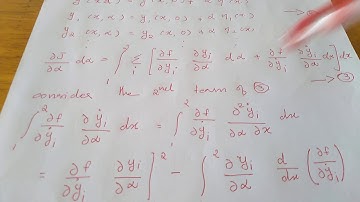 y₁(x, α) = y₁(x, 0) + α η₁(x)
y₂(x, α) = y₂(x, 0) + α η₂(x)
∂J/∂α dα = ∫₁² Σᵢ [∂f/∂yᵢ ∂yᵢ/∂α dα + ∂f/∂ẏᵢ ∂ẏᵢ/∂α dα] dx → ③
consider the 2nd term of ③
∫₁² ∂f/∂ẏᵢ ∂ẏᵢ/∂α dx = ∫₁² ∂f/∂ẏᵢ ∂²yᵢ/∂α ∂x dx
= ∂f/∂ẏᵢ ∂yᵢ/∂α ]₁² − ∫₁² ∂yᵢ/∂α d/dx (∂f/∂ẏᵢ)